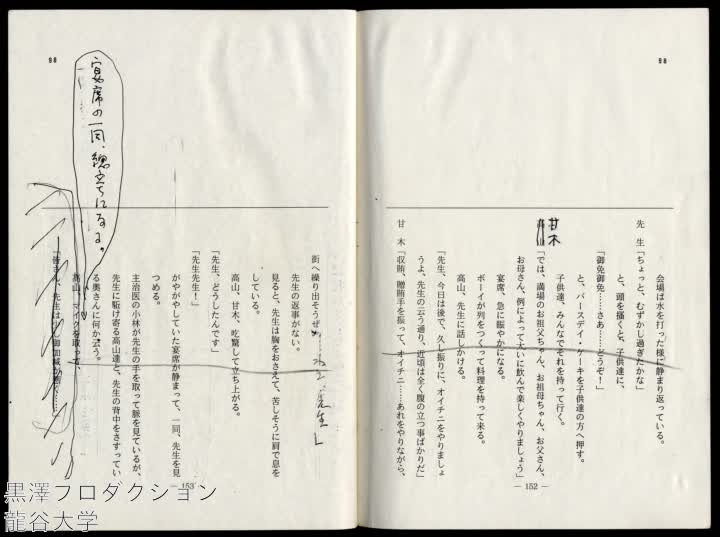 98
会場は水を打った様に静まり返っている。
先生「ちょっと、むずかし過ぎたかな」
と、頭を掻くと、子供達に、
「御免御免……さあ……どうぞ！」
と、バースデイ・ケーキを子供達の方へ押す。
子供達、みんなでそれを持って行く。
甘木
「では、満場のお祖父ちゃん、お祖母ちゃん、お父さん、
お母さん、例によって大いに飲んで楽しくやりましょう」
宴席、急に賑やかになる。
ボーイが列をつくって料理を持って来る。
高山、先生に話しかける。
「先生、今日は後で、久し振りに、オイチニをやりましょ
うよ、先生の云う通り、近頃は全く腹の立つ事ばかりだ」
甘木「収賄、贈賄手を振って、オイチニ……あれをやりながら、
— 152 —
98
街へ繰り出そうぜ
ねえ先生」
先生の返事がない。
見ると、先生は胸をおさえて、苦しそうに肩で息を
している。
高山、甘木、吃驚して立ち上がる。
「先生、どうしたんです」
「先生先生！」
がやがやしていた宴席が静まって、一同、先生を見
つめる。
宴席の一同、総立ちになる。
主治医の小林が先生の手を取って脈を見ているが、
先生に駈け寄る高山達と、先生の背中をさすってい
る奥さんに何か云う。
高山、マイクを取って、
「皆さん、先生は少し御加減が悪く……
— 153 —
黒澤プロダクション
龍谷大学